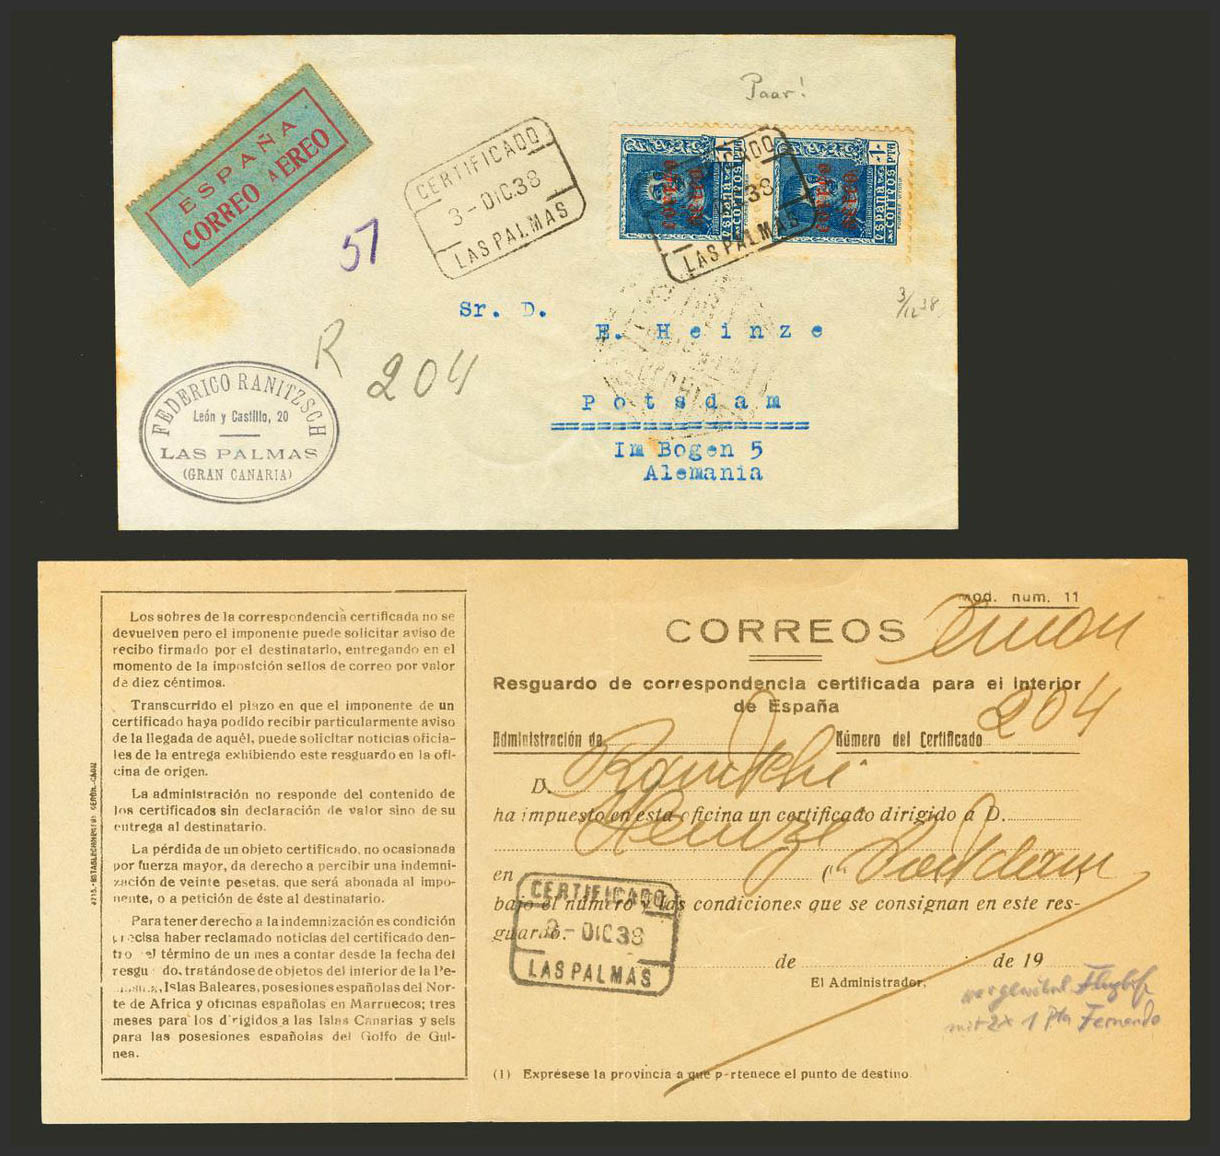 ESPAÑA
CORREO AEREO
57
CERTIFICADO
3-DIC.38
LAS PALMAS
Paar!
1 PTA
ESPAÑA
CORREOS
CORREO AEREO
1 PTA
ESPAÑA
CORREOS
CORREO AEREO
38
LAS PALMAS
3/12 38
Sr. D.
E. Heinze
Potsdam
=================
Im Bogen 5
Alemania
R
204
FEDERICO RANITZSCH
León y Castillo, 20
LAS PALMAS
(GRAN CANARIA)
Los sobres de la correspondencia certificada no se
devuelven pero el imponente puede solicitar aviso de
recibo firmado por el destinatario, entregando en el
momento de la imposición sellos de correo por valor
de diez céntimos.
Transcurrido el plazo en que el imponente de un
certificado haya podido recibir particularmente aviso
de la llegada de aquél, puede solicitar noticias oficia-
les de la entrega exhibiendo este resguardo en la ofi-
cina de origen.
La administración no responde del contenido de
los certificados sin declaración de valor sino de su
entrega al destinatario.
La pérdida de un objeto certificado, no ocasionada
por fuerza mayor, da derecho a percibir una indemni-
zación de veinte pesetas, que será abonada al impo-
nente, o a petición de éste al destinatario.
Para tener derecho a la indemnización es condición
precisa haber reclamado noticias del certificado den-
tro el término de un mes a contar desde la fecha del
resgu do, tratándose de objetos del interior de la Pe-
Islas Baleares, posesiones españolas del Nor-
te de Africa y oficinas españolas en Marruecos; tres
meses para los dirigidos a las Islas Canarias y seis
para las posesiones españolas del Golfo de Gui-
nea.
mod. num. 11
CORREOS
Resguardo de correspondencia certificada para el interior
de España
Administración de Número del Certificado 204
D.
ha impuesto en esta oficina un certificado dirigido a D.
Heinze
en (1) Potsdam
bajo el número y las condiciones que se consignan en este res-
guardo.
CERTIFICADO
3-DIC38
LAS PALMAS
de de 19
El Administrador,
Flugbf
mit 2x 1 Pta Fernando
(1) Exprésese la provincia a que pertenece el punto de destino.